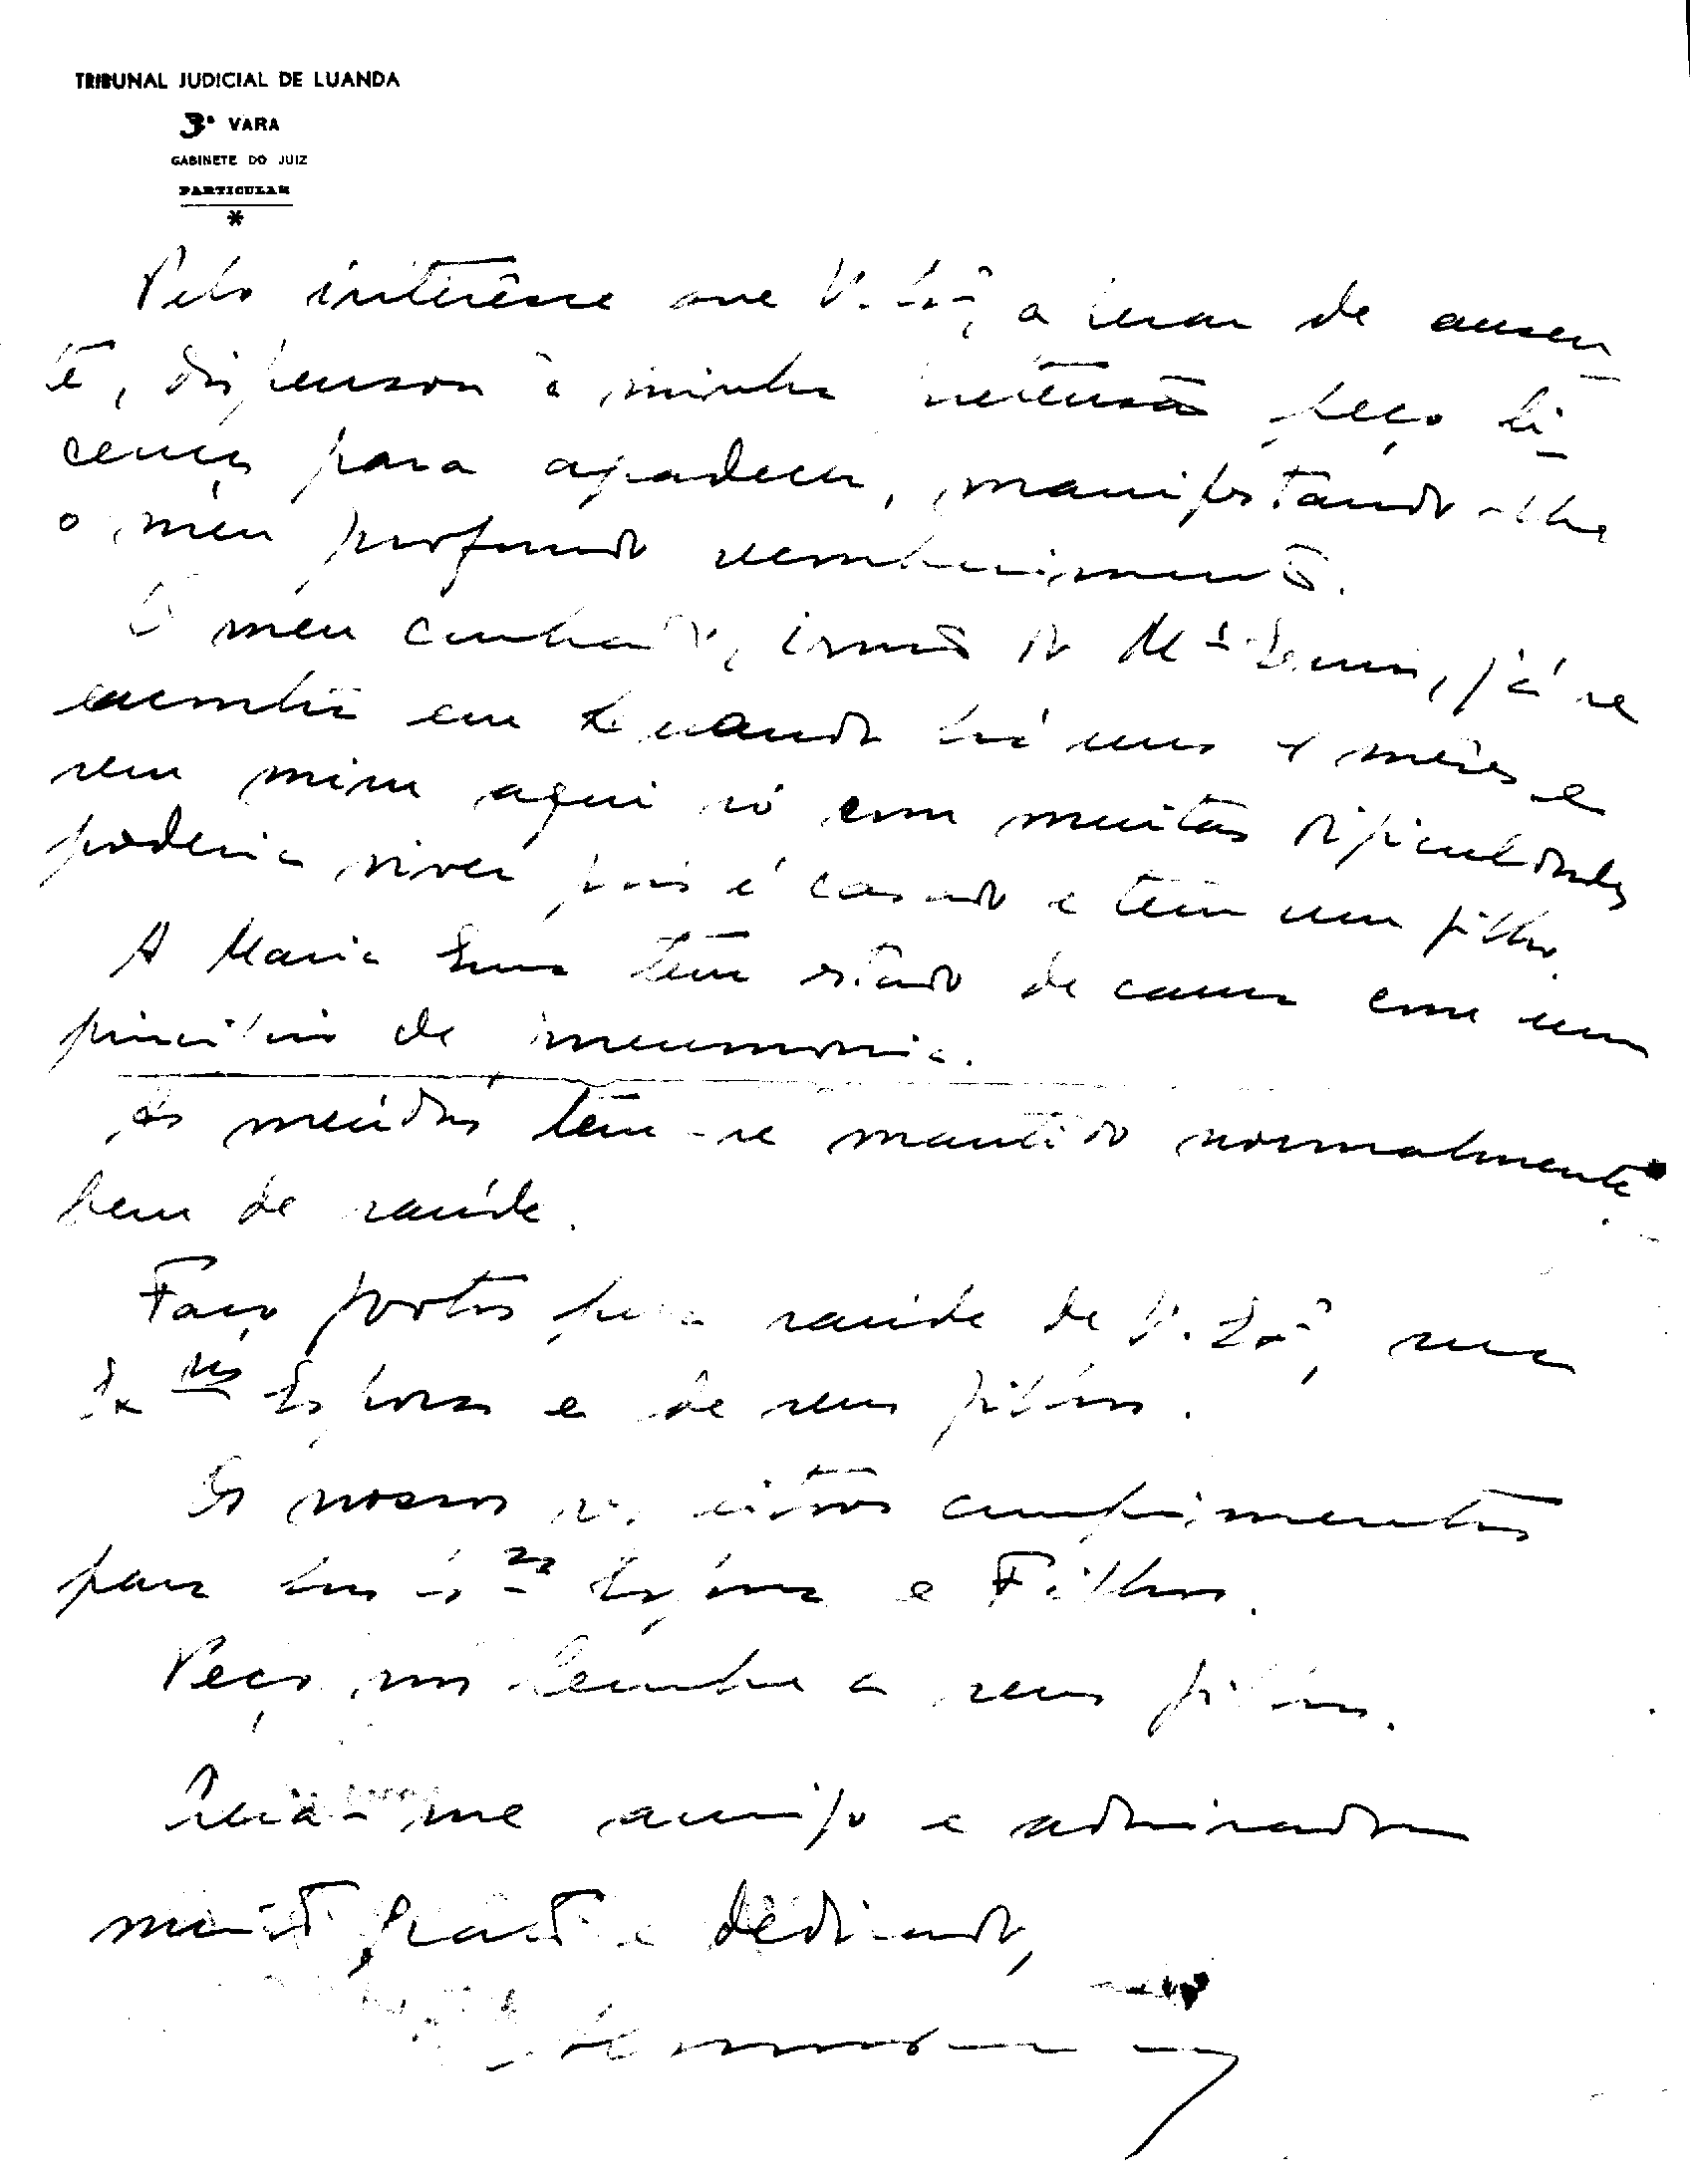 TRIBUNAL JUDICIAL DE LUANDA
3ª VARA
GABINETE DO JUIZ
PARTICULAR
*
Pelo interêsse que V. Exª, a pesar de ausen-
te, dispensou à minha pretensão peço li-
cença para agradecer, manifestando-lhe
o meu profundo reconhecimento.
O meu cunhado, irmão da Mª Ema, já se
encontra em Luanda há uns 4 mêses e
sem mim aqui só com muitas dificuldades
poderia viver pois é casado e tem um filho.
A Maria Ema tem estado de cama com um
princípio de pneumonia.
Os meúdos têm-se mantido normalmente
bem de saúde.
Faço votos pela saúde de V. Exª, sua
Exma Esposa e de seus filhos.
Os nossos respeitosos cumprimentos
para sua Exma Espôsa e Filhos.
Peço nos lembre a seus filhos.
Creia-me amigo e admirador
muito grato e dedicado,